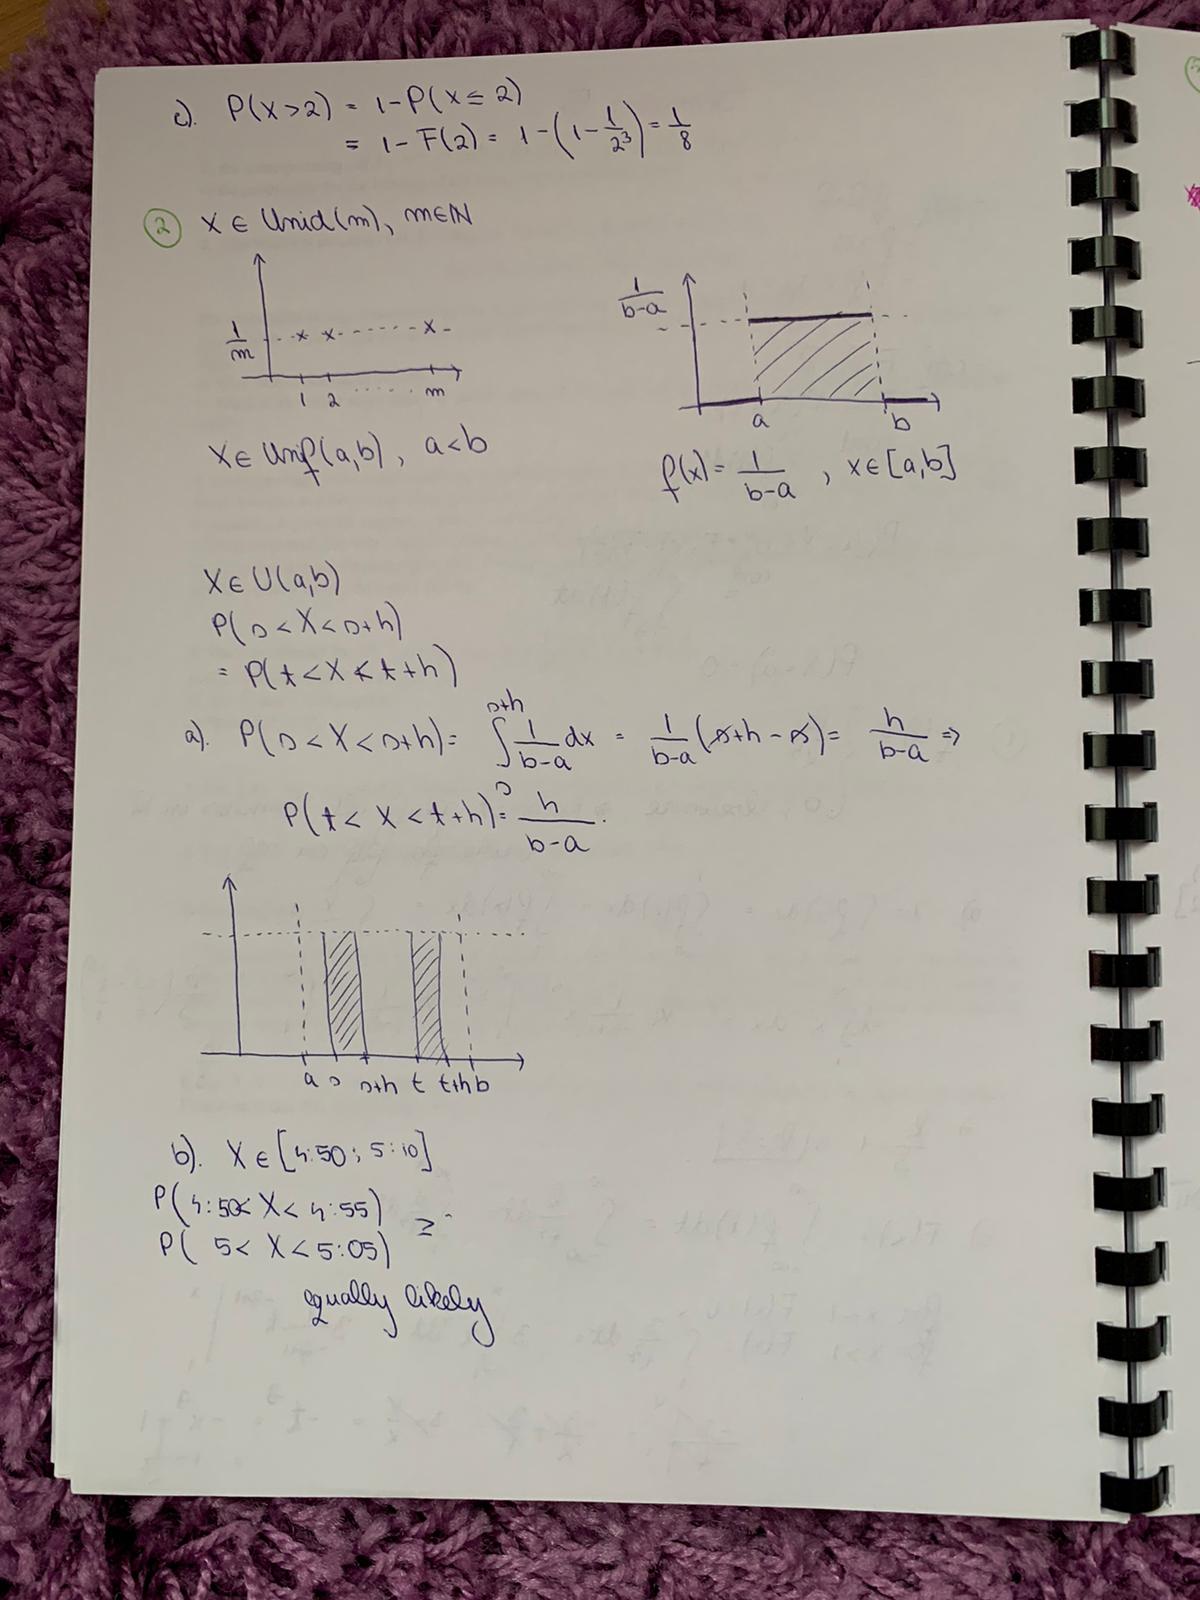 c). P(X>2) = 1-P(X≤2)
= 1-F(2) = 1-(1-1/2³) = 1/8
② X ∈ Unid(m), m∈ℕ
1/m
1 2 ..... m
1/(b-a)
a b
X∈Unif(a,b), a<b
f(x) = 1/(b-a) , x∈[a,b]
X∈U(a,b)
P(s<X<s+h)
= P(t<X<t+h)
a). P(s<X<s+h) = ∫_s^{s+h} 1/(b-a) dx = 1/(b-a) (s+h-s) = h/(b-a) ⇒
P(t<X<t+h) = h/(b-a).
a s s+h t t+h b
b). X∈[4:50; 5:10]
P(4:50<X<4:55)
P( 5<X<5:05)
equally likely